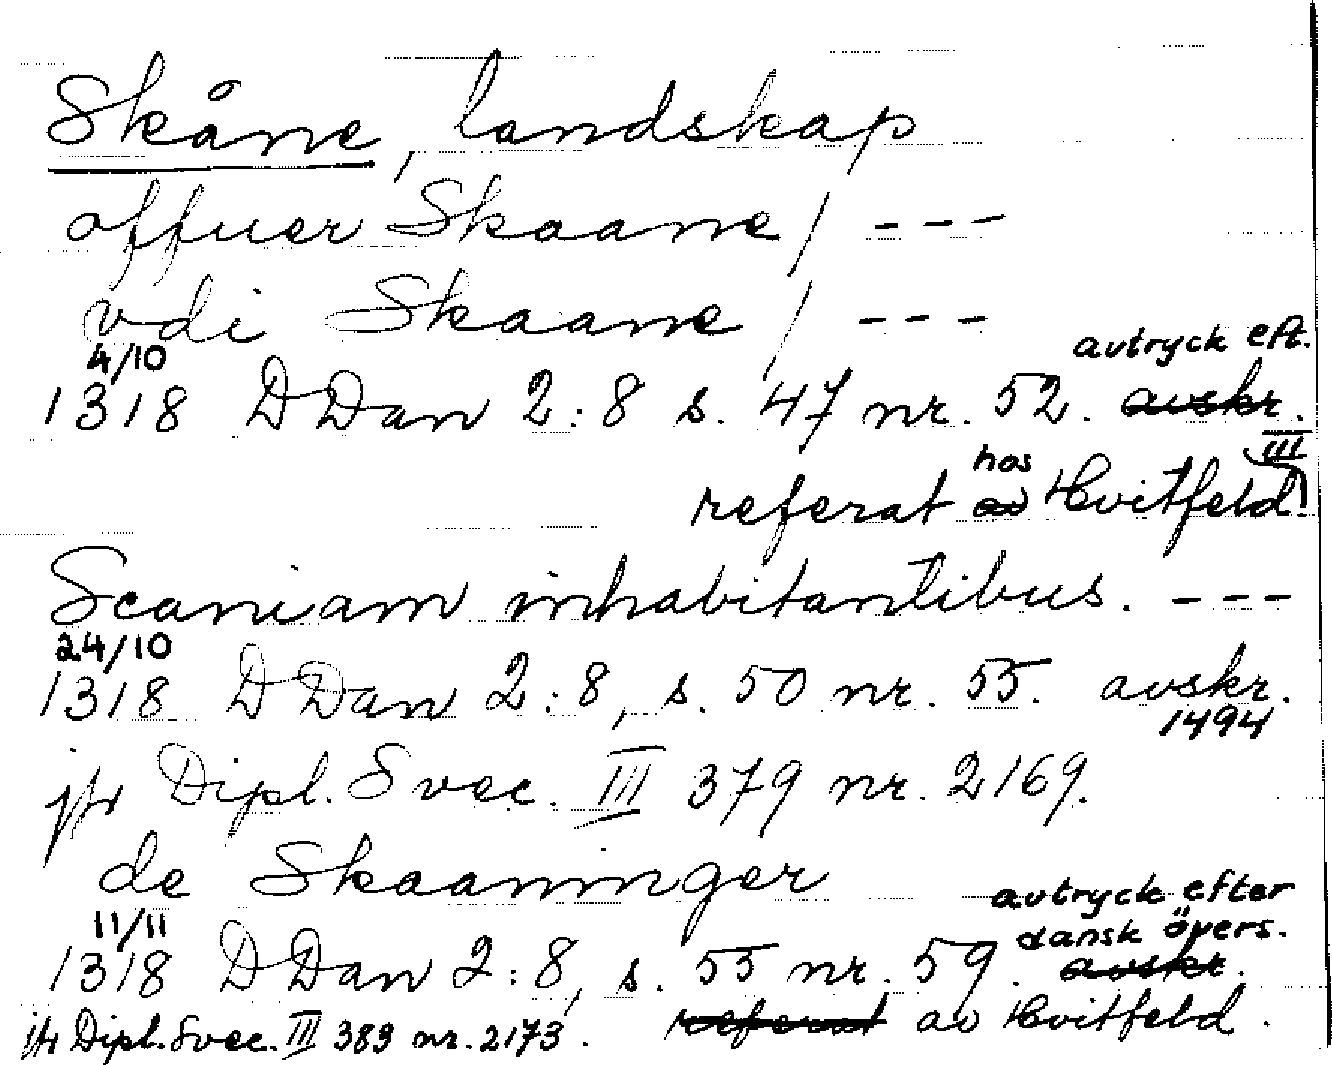 Skåne, landskap
offuer Skaane / ---
vdi Skaane / ---
4/10 avtryck eft.
1318 DDan 2:8 s. 47 nr. 52. avskr.
III
referat hos av Hvitfeld.
Scaniam inhabitantibus. ---
24/10
1318 DDan 2:8, s. 50 nr. 55. avskr.
1494
jfr Dipl. Svec. III 379 nr. 2169.
de Skaaninger
11/11 avtryck efter
dansk övers.
1318 DDan 2:8, s. 55 nr. 59. avskr.
jfr Dipl. Svec. III 383 nr. 2173. referat av Hvitfeld.